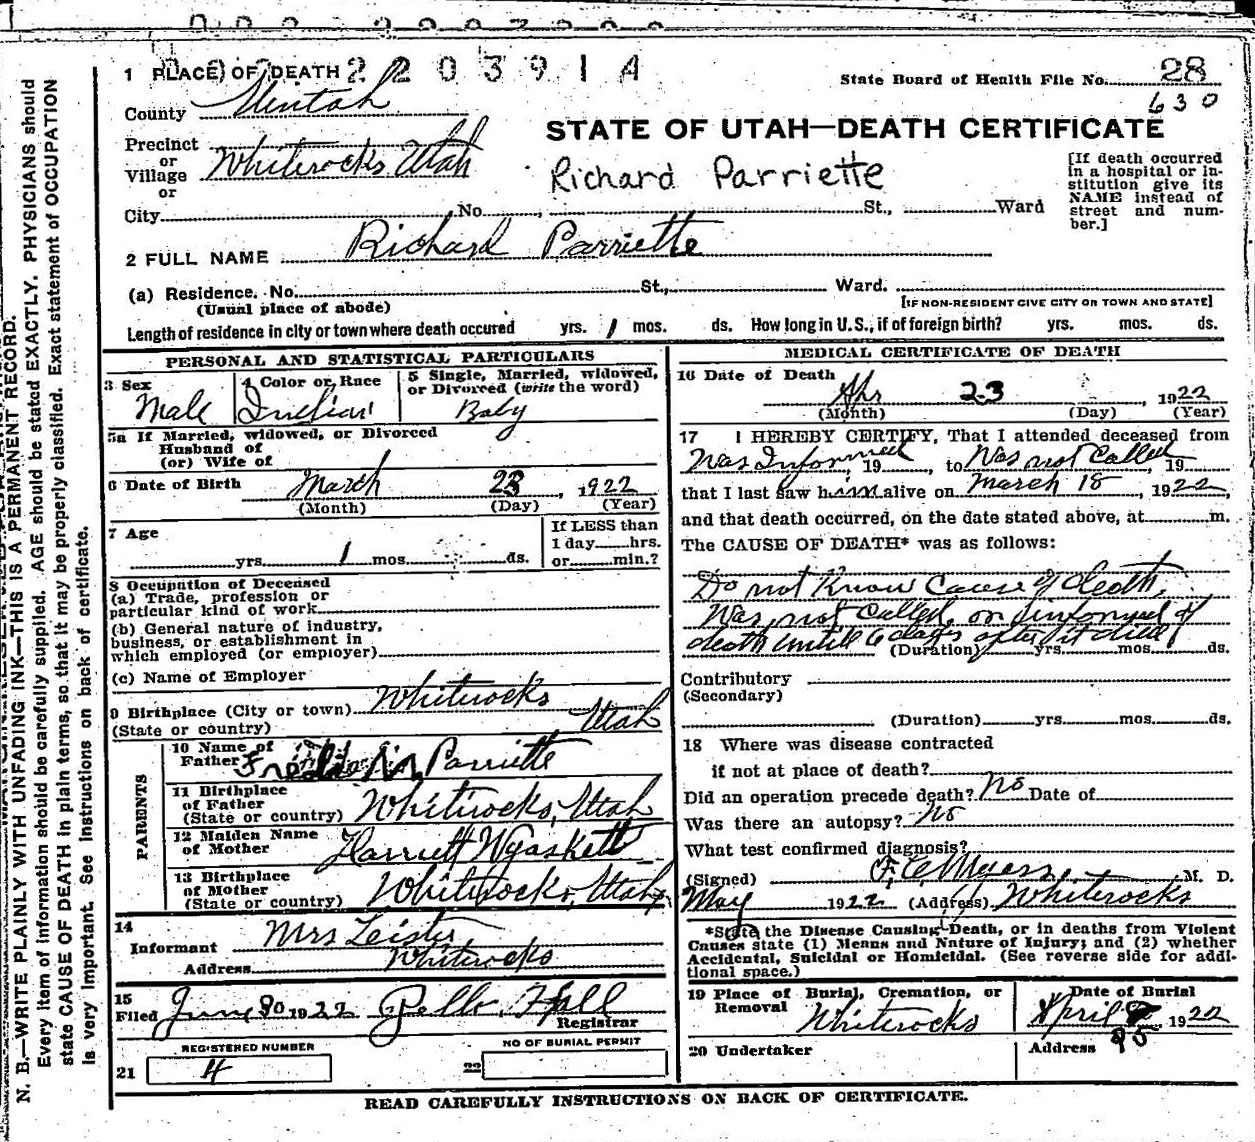 1 PLACE OF DEATH 2 2 0 3 9 1 A
State Board of Health File No. 28
630
County Uintah
STATE OF UTAH—DEATH CERTIFICATE
Precinct
or
Village Whiterocks Utah
or
Richard Parriette
[If death occurred
in a hospital or in-
stitution give its
NAME instead of
street and num-
ber.]
City No. St., Ward
2 FULL NAME Richard Parriette
(a) Residence. No. St., Ward.
(Usual place of abode) [IF NON-RESIDENT GIVE CITY OR TOWN AND STATE]
Length of residence in city or town where death occured yrs. 1 mos. ds. How long in U.S., if of foreign birth? yrs. mos. ds.
PERSONAL AND STATISTICAL PARTICULARS
3 Sex
Male
4 Color or Race
Indian
5 Single, Married, widowed,
or Divorced (write the word)
Baby
5a If Married, widowed, or Divorced
Husband of
(or) Wife of
6 Date of Birth March 23, 1922
(Month) (Day) (Year)
7 Age
yrs. 1 mos. ds.
If LESS than
1 day hrs.
or min.?
8 Occupation of Deceased
(a) Trade, profession or
particular kind of work
(b) General nature of industry,
business, or establishment in
which employed (or employer)
(c) Name of Employer
9 Birthplace (City or town) Whiterocks
(State or country) Utah
PARENTS
10 Name of
Father Parriette
11 Birthplace
of Father
(State or country) Whiterocks, Utah
12 Maiden Name
of Mother Harriett Wyaskett
13 Birthplace
of Mother
(State or country) Whiterocks, Utah
14
Informant Mrs Leister
Address Whiterocks
15
Filed June 30 1922 Hall
Registrar
REGISTERED NUMBER
21 4
NO OF BURIAL PERMIT
22
MEDICAL CERTIFICATE OF DEATH
16 Date of Death
Apr 23, 1922
(Month) (Day) (Year)
17 I HEREBY CERTIFY, That I attended deceased from
Was Informed, 19 , to Was not Called, 19
that I last saw him alive on March 18, 1922,
and that death occurred, on the date stated above, at m.
The CAUSE OF DEATH* was as follows:
Do not Know Cause of death,
Was not Called, or informed of
death until 6 days after it died
(Duration) yrs. mos. ds.
Contributory
(Secondary)
(Duration) yrs. mos. ds.
18 Where was disease contracted
if not at place of death?
Did an operation precede death? No Date of
Was there an autopsy? No
What test confirmed diagnosis?
(Signed) F. C. Myers, M. D.
May 1922 (Address) Whiterocks
*State the Disease Causing Death, or in deaths from Violent
Causes state (1) Means and Nature of Injury; and (2) whether
Accidental, Suicidal or Homicidal. (See reverse side for addi-
tional space.)
19 Place of Burial, Cremation, or
Removal
Whiterocks
Date of Burial
April 1922
25
20 Undertaker
Address
READ CAREFULLY INSTRUCTIONS ON BACK OF CERTIFICATE.
N. B.—WRITE PLAINLY WITH UNFADING INK—THIS IS A PERMANENT RECORD.
Every item of information should be carefully supplied. AGE should be stated EXACTLY. PHYSICIANS should
state CAUSE OF DEATH in plain terms, so that it may be properly classified. Exact statement of OCCUPATION
is very important. See instructions on back of certificate.